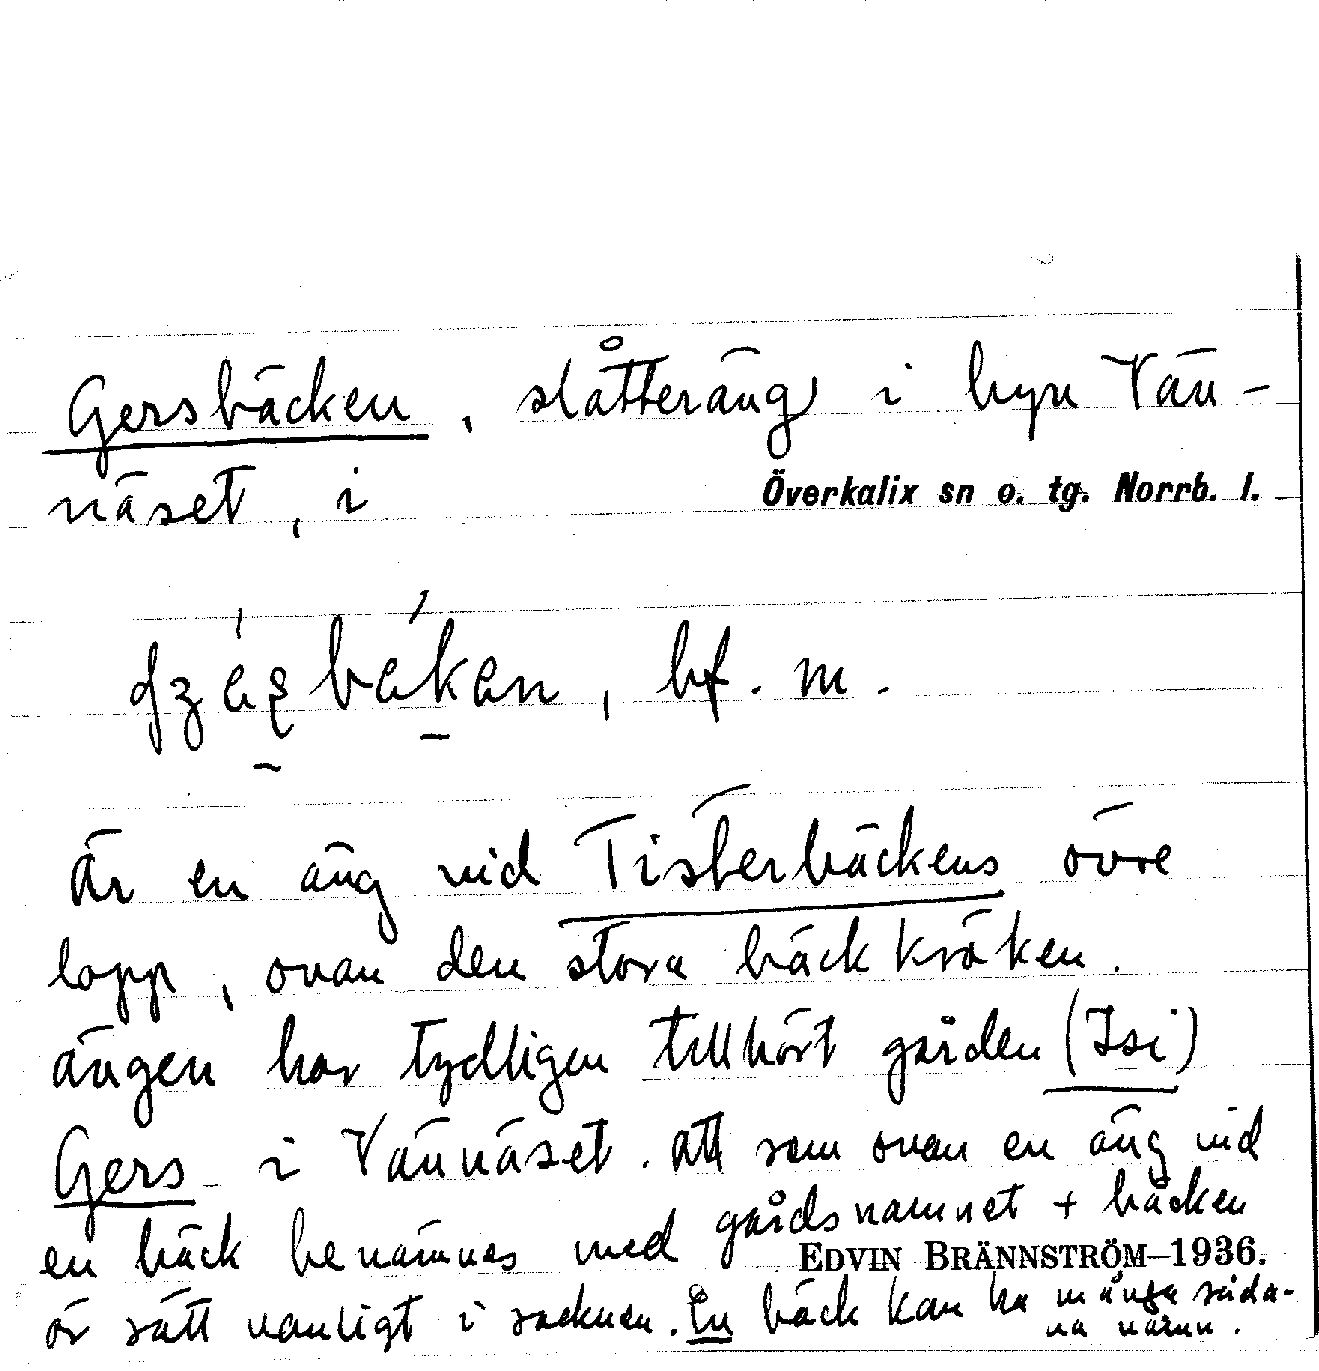 Gersbäcken, slåtteräng i byn Vän-
näset, i Överkalix sn o. tg. Norrb. l.
bf. m.
Är en äng vid Tisterbäckens övre
lopp, ovan den stora bäckkröken.
Ängen har tydligen tillhört gården (Isi)
Gers i Vännäset. Att som ovan en äng vid
en bäck benämnes med gårdsnamnet + bäcken
EDVIN BRÄNNSTRÖM—1936.
är rätt vanligt i socknen. En bäck kan ha många såda-
na namn.